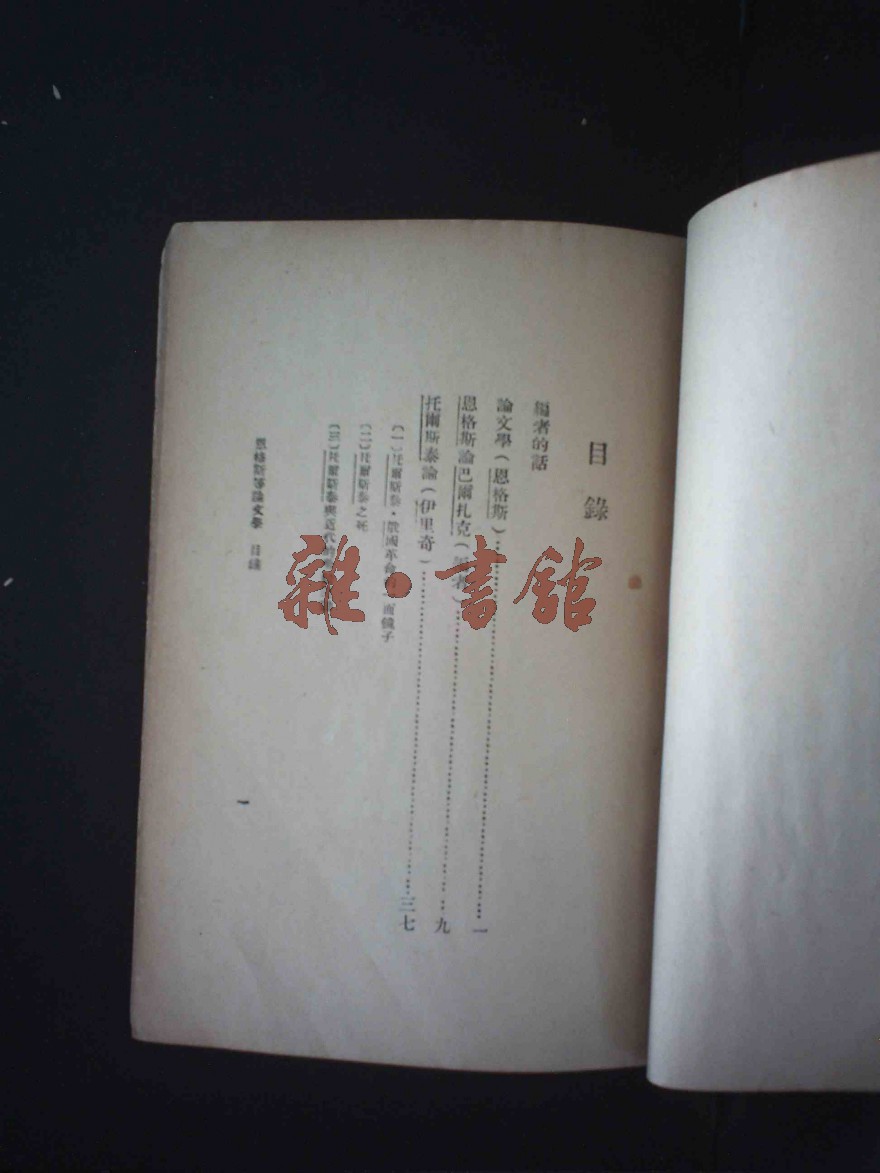 目錄
編者的話
論文學(恩格斯)…………一
恩格斯論巴爾扎克(者)…………九
托爾斯泰論(伊里奇)…………三七
(一)托爾斯泰・俄國革命的一面鏡子
(二)托爾斯泰之死
(三)托爾斯泰與近代
恩格斯等論文學 目錄
一
雜・書館